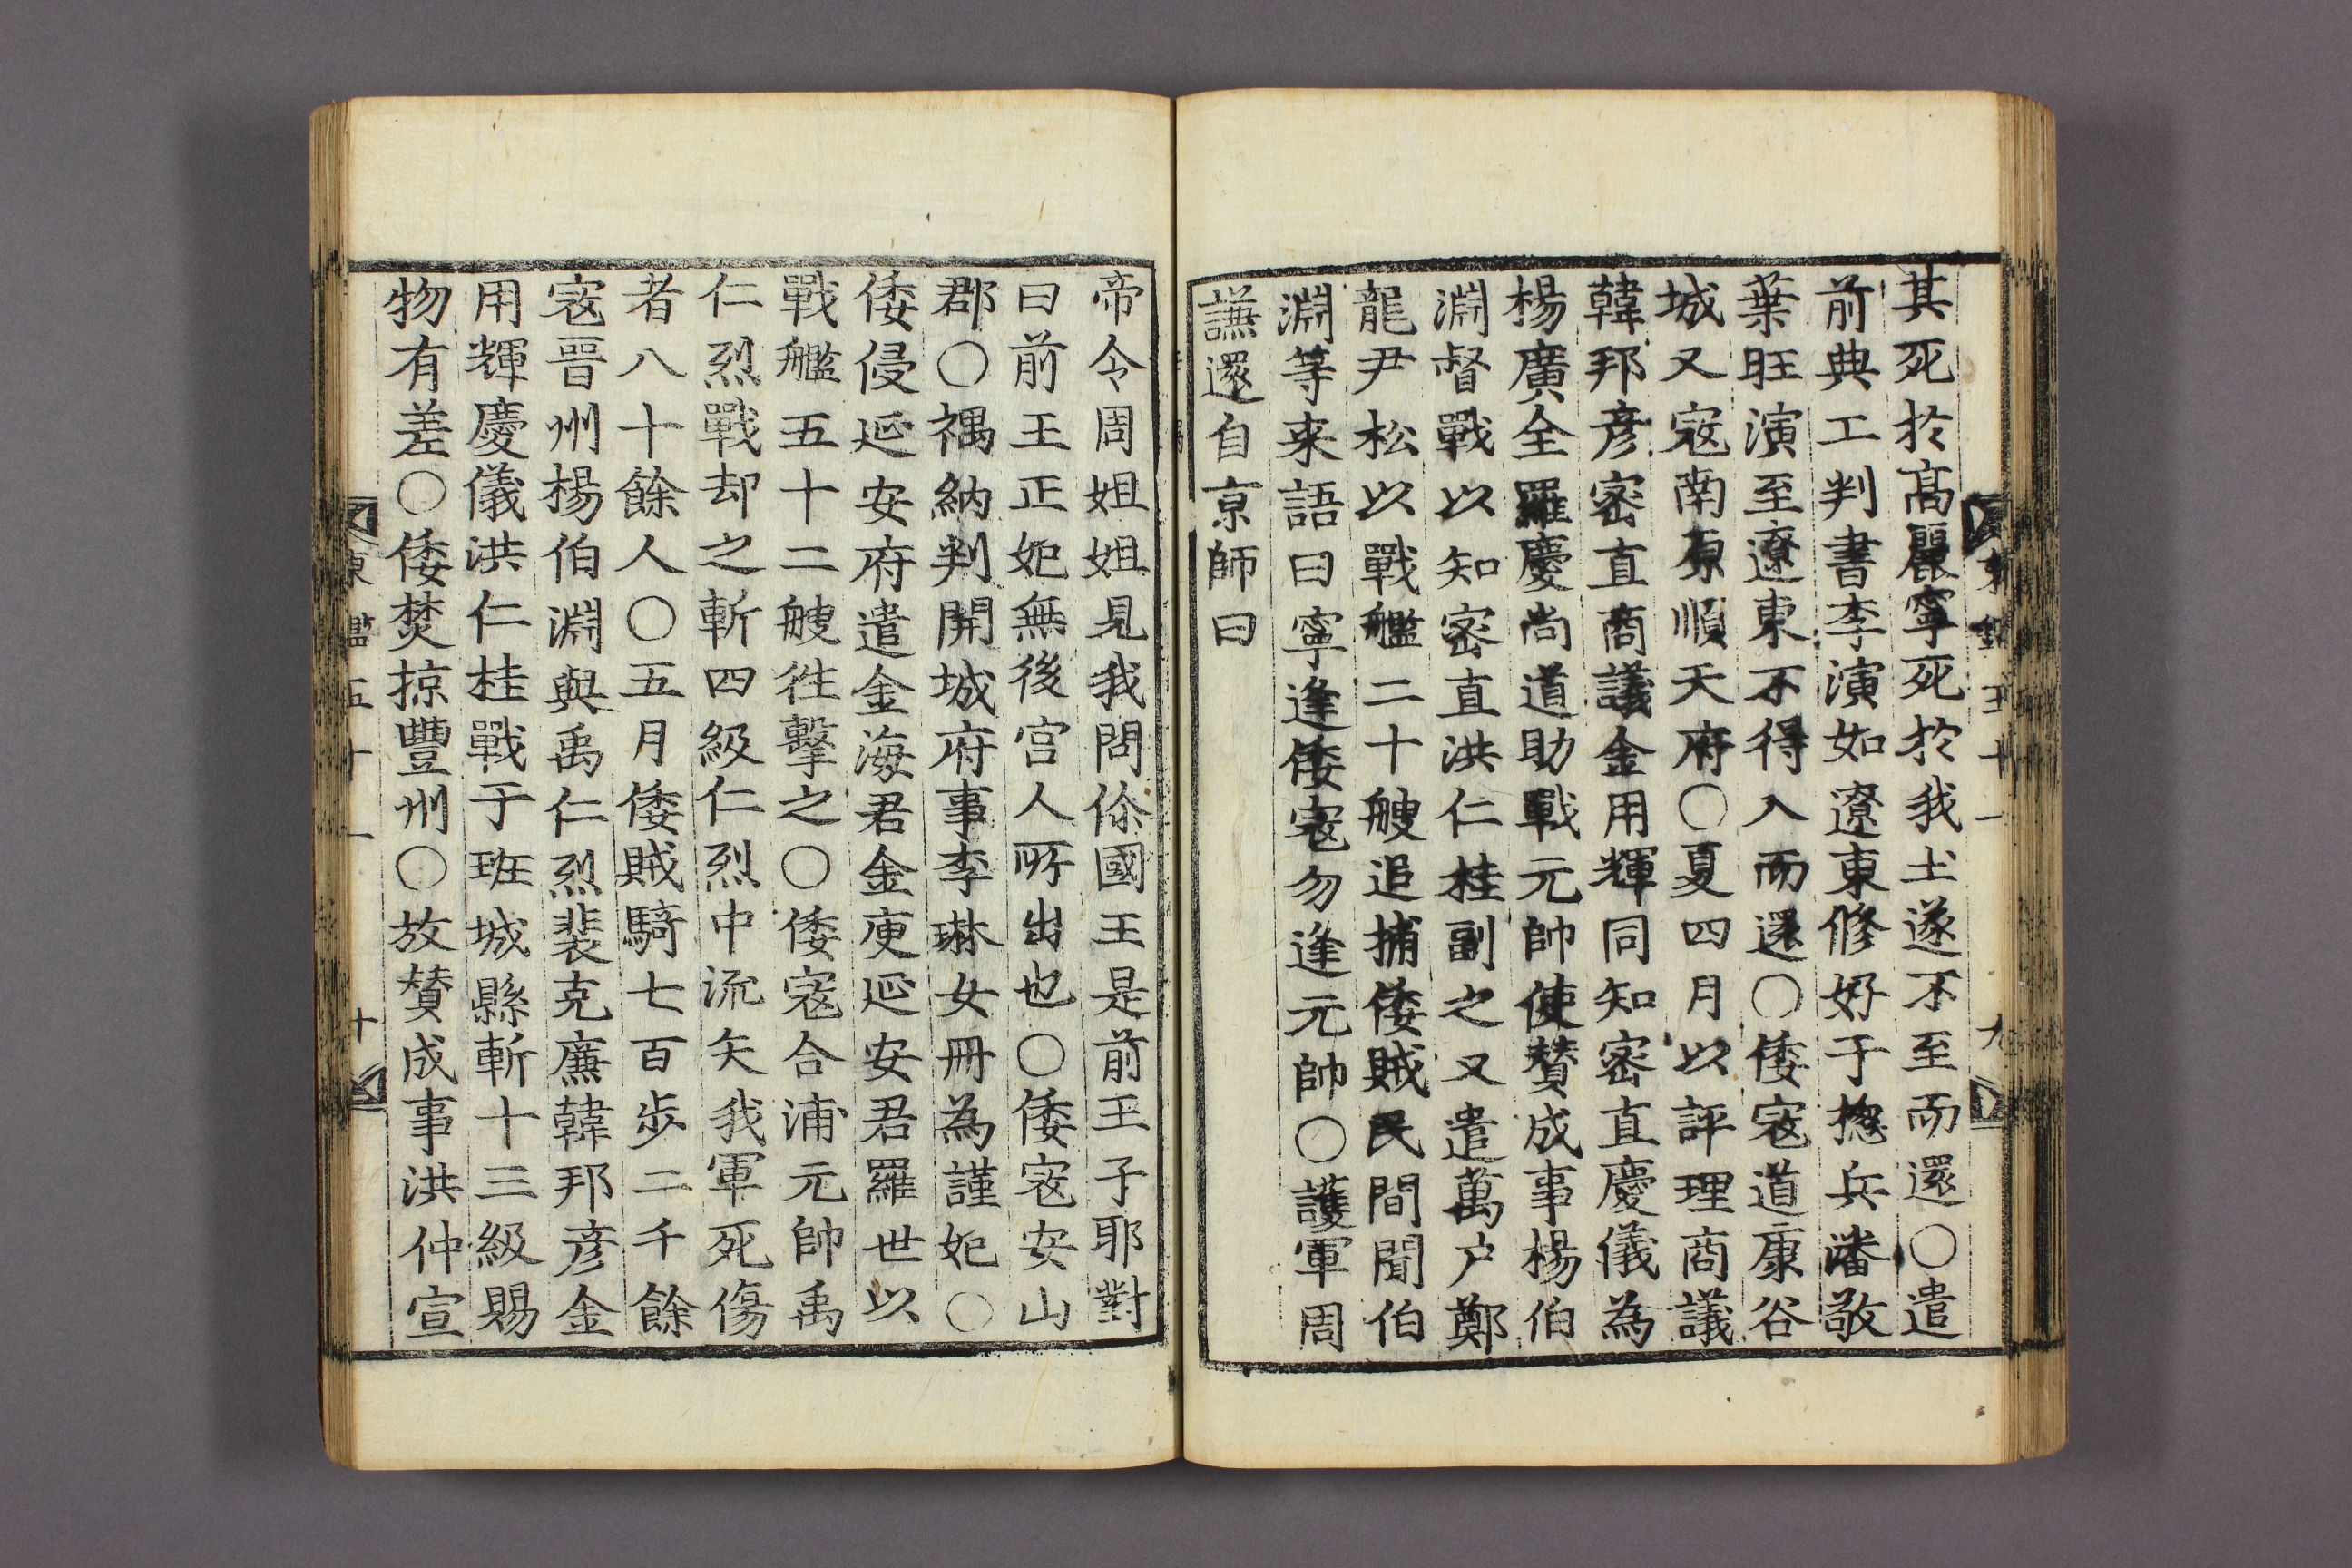 其死於高麗寧死於我土遂不至而還○遣
前典工判書李演如遼東修好于摠兵潘敬
葉旺演至遼東不得入而還○倭寇道康谷
城又寇南原順天府○夏四月以評理商議
韓邦彦密直商議金用輝同知密直慶儀為
楊廣全羅慶尚道助戰元帥使賛成事楊伯
淵督戰以知密直洪仁桂副之又遣萬户鄭
龍尹松以戰艦二十艘追捕倭賊民間聞伯
淵等来語曰寧逢倭寇勿逢元帥○護軍周
謙還自京師曰
帝令周姐姐見我問你國王是前王子耶對
曰前王正妃無後宫人所出也○倭寇安山
郡○禑納判開城府事李琳女冊為謹妃○
倭侵延安府遣金海君金庾延安君羅世以
戰艦五十二艘徃擊之○倭寇合浦元帥禹
仁烈戰却之斬四級仁烈中流矢我軍死傷
者八十餘人○五月倭賊騎七百步二千餘
寇晋州楊伯淵與禹仁烈裴克廉韓邦彦金
用輝慶儀洪仁桂戰于班城縣斬十三級賜
物有差○倭焚掠豐州○放賛成事洪仲宣
東鑑五十一
十